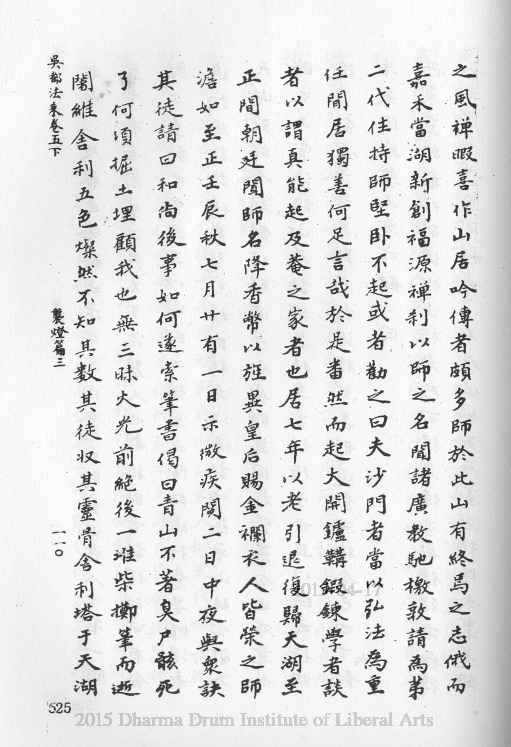 之風禪暇喜作山居吟傳者頗多師於此山有終焉之志俄而
嘉禾當湖新創福源禪剎以師之名聞諸廣教馳檄敦請為第
二代住持師堅臥不起或者勸之曰夫沙門者當以弘法為重
任閒居獨善何足言哉於是畨然而起大開鑪鞴鍛鍊學者談
者以謂真能起及菴之家者也居七年以老引退復歸天湖至
正間朝廷聞師名降香幣以旌異皇后賜金襴衣人皆榮之師
澹如至正壬辰秋七月廿有一日示微疾閱二日中夜與眾訣
其徒請曰和尚後事如何遂索筆書偈曰青山不著臭尸骸死
了何須掘土埋顧我也無三昧火光前絕後一堆柴擲筆而逝
闍維舍利五色燦然不知其數其徒収其靈骨舍利塔于天湖
吳都法乘卷五下
襲燈篇三
一一〇
525
2015 Dharma Drum Institute of Liberal Arts